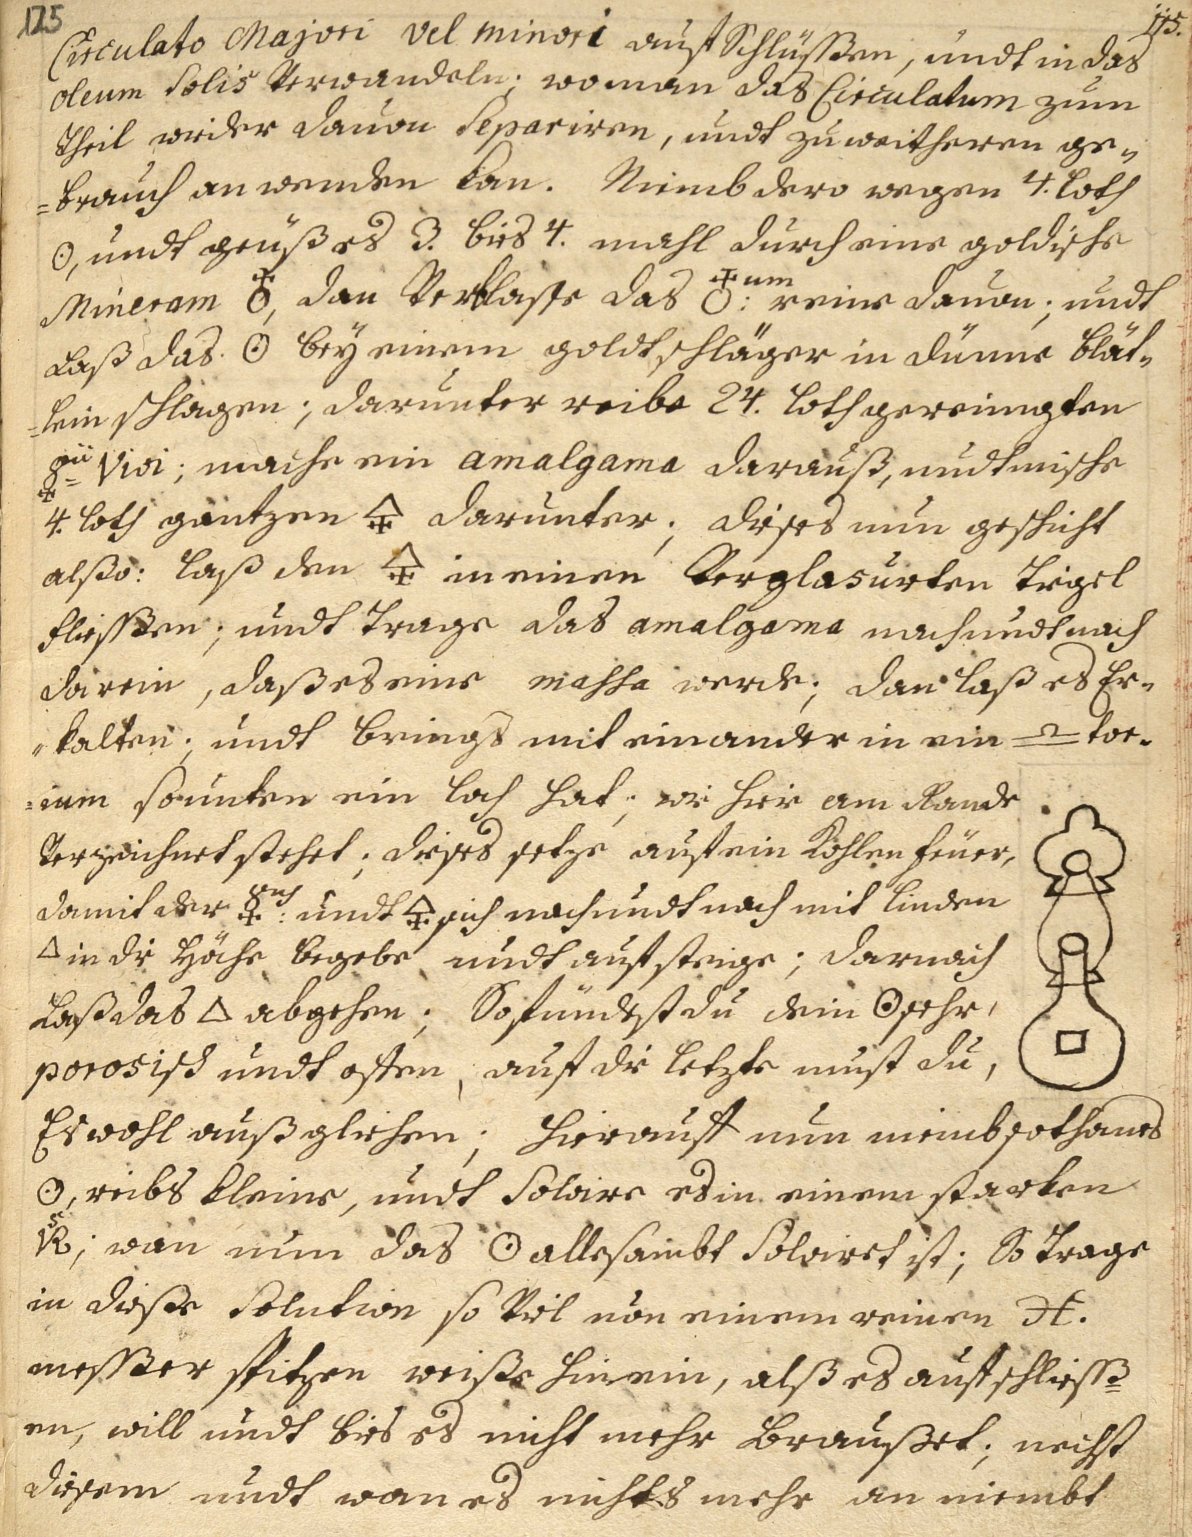 125
115.
Circulato Majori vel minori auff Schlüssen, undt in das
oleum Solis Verwandeln; wo man das Circulatum zum
Theil wider davon Separiren, undt zu weitheren ge„
=brauch anwenden kan. Nimb dero wegen 4. loth
☉, undt güß es 3. bis 4. mahl durch eine goldische
Mineram ♁, dan Verblase das ♁um: reine davon; undt
laß das ☉ bey einem goldtschläger in dünne blät„
=lein schlagen; darunter reibe 24. loth gereinigten
☿ii Vivi; mache ein amalgama darauß, undt mische
4. loth gantzen 🜍 darunter; dises nun geschicht
alßo: laß den 🜍 in einen Verglasurten Tigel
fliessen; undt Trage das amalgama nach undt nach
darein, daß es eine massa werde; dan laß es Er„
„kalten; undt brings mit einander in ein ♎tor„
=ium so unten ein loch hat; wie hier am Rande
Verzeichnet stehet; dises setze auff ein Kohlen feüer,
damit der ☿: undt 🜍 sich nach undt nach mit linden
△ in die Höhe begebe undt auff steige; darnach
laß das △ abgehen; So findest du dein ☉ sehr,
porosisch undt offen, auff die letzte must du,
Es wohl außgliehen; hierauff nun nimb sothanes
☉, reibs kleine, undt Solvire es in einem starken
VR; wan nun das ☉ allesambt Solvirt ist; So Trage
in dieße Solution so Viel von einem reinen
messer spitzen weiße hinein, alß es auffschließ=
en, will undt bis es nicht mehr braußet; nechst
disem undt wan es nichts mehr an nimbt